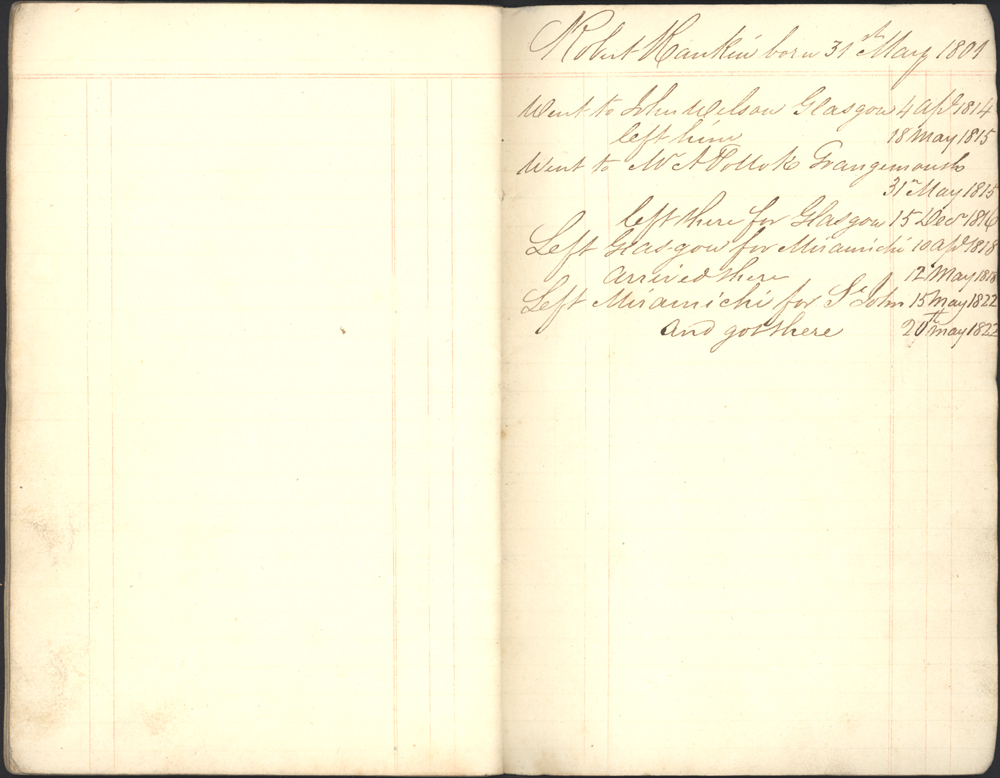 Robert Rankin born 31st May 1801
Went to John Wilson Glasgow 4 Apl 1814
left him 18 May 1815
Went to Mr A Pollok Grangemouth
31st May 1815
left there for Glasgow 15 Decr 1816
Left Glasgow for Miramichi 10 Apl 1818
arrived there 12 May 1818
Left Miramichi for St John 15 May 1822
and got there 20th May 1822